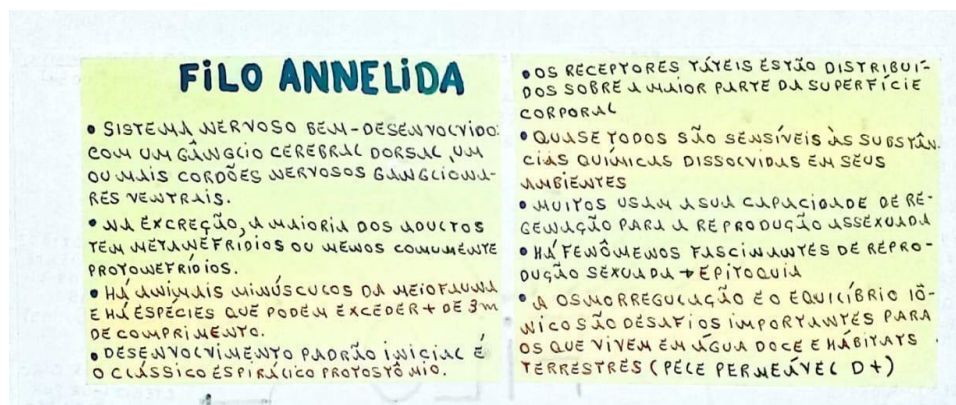 FILO ANNELIDA
• SISTEMA NERVOSO BEM-DESENVOLVIDO:
COM UM GÂNGLIO CEREBRAL DORSAL, UM
OU MAIS CORDÕES NERVOSOS GANGLIONA-
RES VENTRAIS.
• NA EXCREÇÃO, A MAIORIA DOS ADULTOS
TEM METANEFRÍDIOS OU MENOS COMUMENTE
PROTONEFRÍDIOS.
• HÁ ANIMAIS MINÚSCULOS DA MEIOFAUNA
E HÁ ESPÉCIES QUE PODEM EXCEDER + DE 3m
DE COMPRIMENTO.
• DESENVOLVIMENTO PADRÃO INICIAL É
O CLÁSSICO ESPIRÁLICO PROTOSTÔMIO.
• OS RECEPTORES TÁTEIS ESTÃO DISTRIBUÍ-
DOS SOBRE A MAIOR PARTE DA SUPERFÍCIE
CORPORAL
• QUASE TODOS SÃO SENSÍVEIS ÀS SUBSTÂN-
CIAS QUÍMICAS DISSOLVIDAS EM SEUS
AMBIENTES
• MUITOS USAM A SUA CAPACIDADE DE RE-
GENAÇÃO PARA A REPRODUÇÃO ASSEXUADA
• HÁ FENÔMENOS FASCINANTES DE REPRO-
DUÇÃO SEXUADA → EPITOQUIA
• A OSMORREGULAÇÃO E O EQUILÍBRIO IÔ-
NICO SÃO DESAFIOS IMPORTANTES PARA
OS QUE VIVEM EM ÁGUA DOCE E HÁBITATS
TERRESTRES (PELE PERMEÁVEL D+)